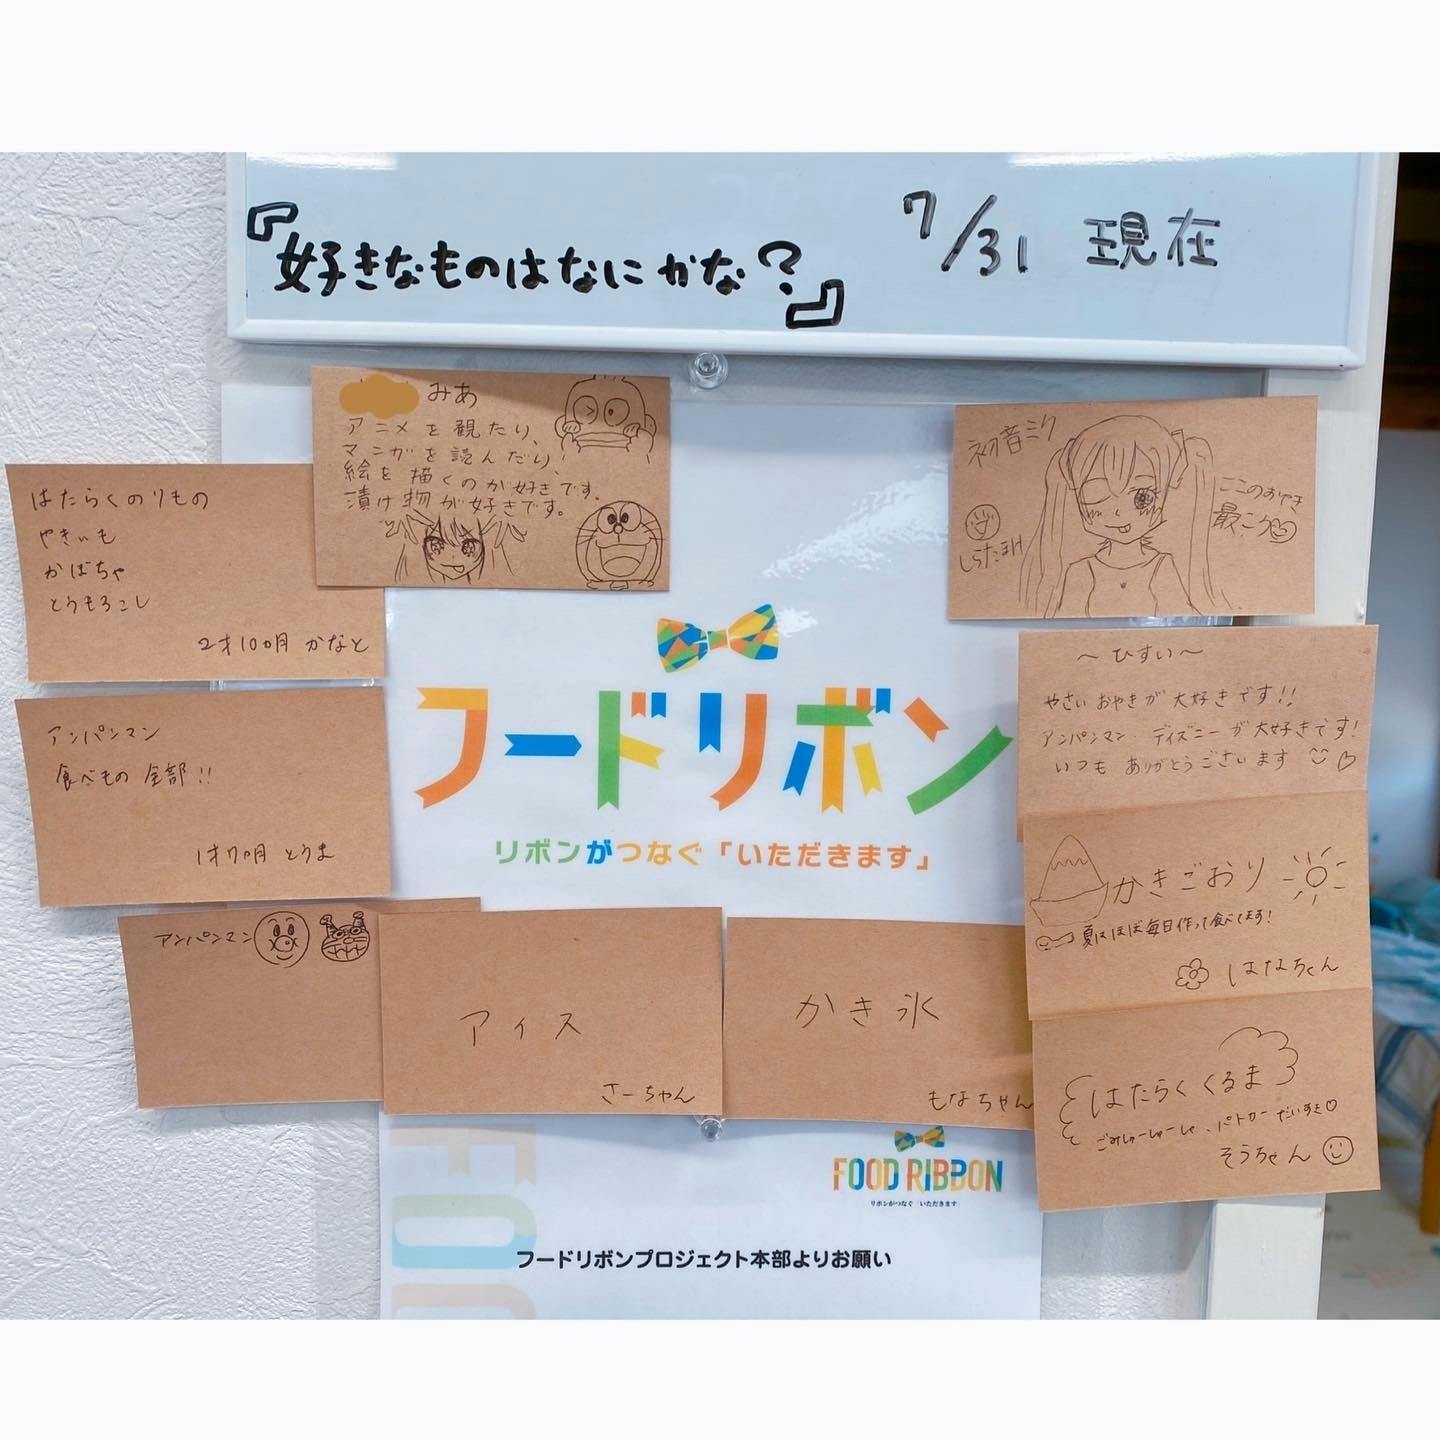 『好きなものはなにかな?』
7/31 現在
みあ
アニメを観たり、
マンガを読んだり、
絵を描くのが好きです。
漬け物が好きです。
初音ミク
ここのおやき
最こう
はたらくのりもの
やきいも
かぼちゃ
とうもろこし
2才10ヶ月 かなと
アンパンマン
食べもの 全部!!
1才7ヶ月 とうま
アンパンマン
アイス
さーちゃん
かき氷
もなちゃん
～ひすい～
やさいおやきが大好きです!!
アンパンマン、ディズニーが大好きです!
いつも ありがとうございます
かきごおり
夏はほぼ毎日作って食べてます!
はなちゃん
はたらくくるま
ごみしゅーしゅーしゃ、パトカーだいすき♡
そうちゃん
フードリボン
リボンがつなぐ「いただきます」
FOOD RIBBON
リボンがつなぐ「いただきます」
フードリボンプロジェクト本部よりお願い